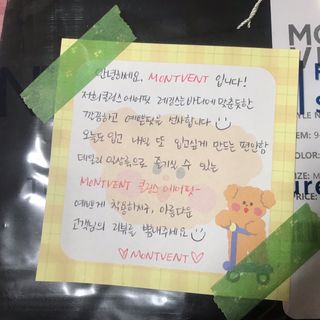 안녕하세요, MONTVENT 입니다!
저희 쿨링스 에어핏 레깅스는 바디에 맞춤듯한
깔끔하고 예쁜핏을 선사합니다
오늘도 입고 내일 또 입고싶게 만드는 편안함
데일리 일상용으로 즐기실 수 있는
MONTVENT 쿨링스 에어핏~
예쁘게 착용하시구, 아름다운
고객님의 리뷰를 뽐내주세요
MONTVENT
MO
COLOR:
SIZE: